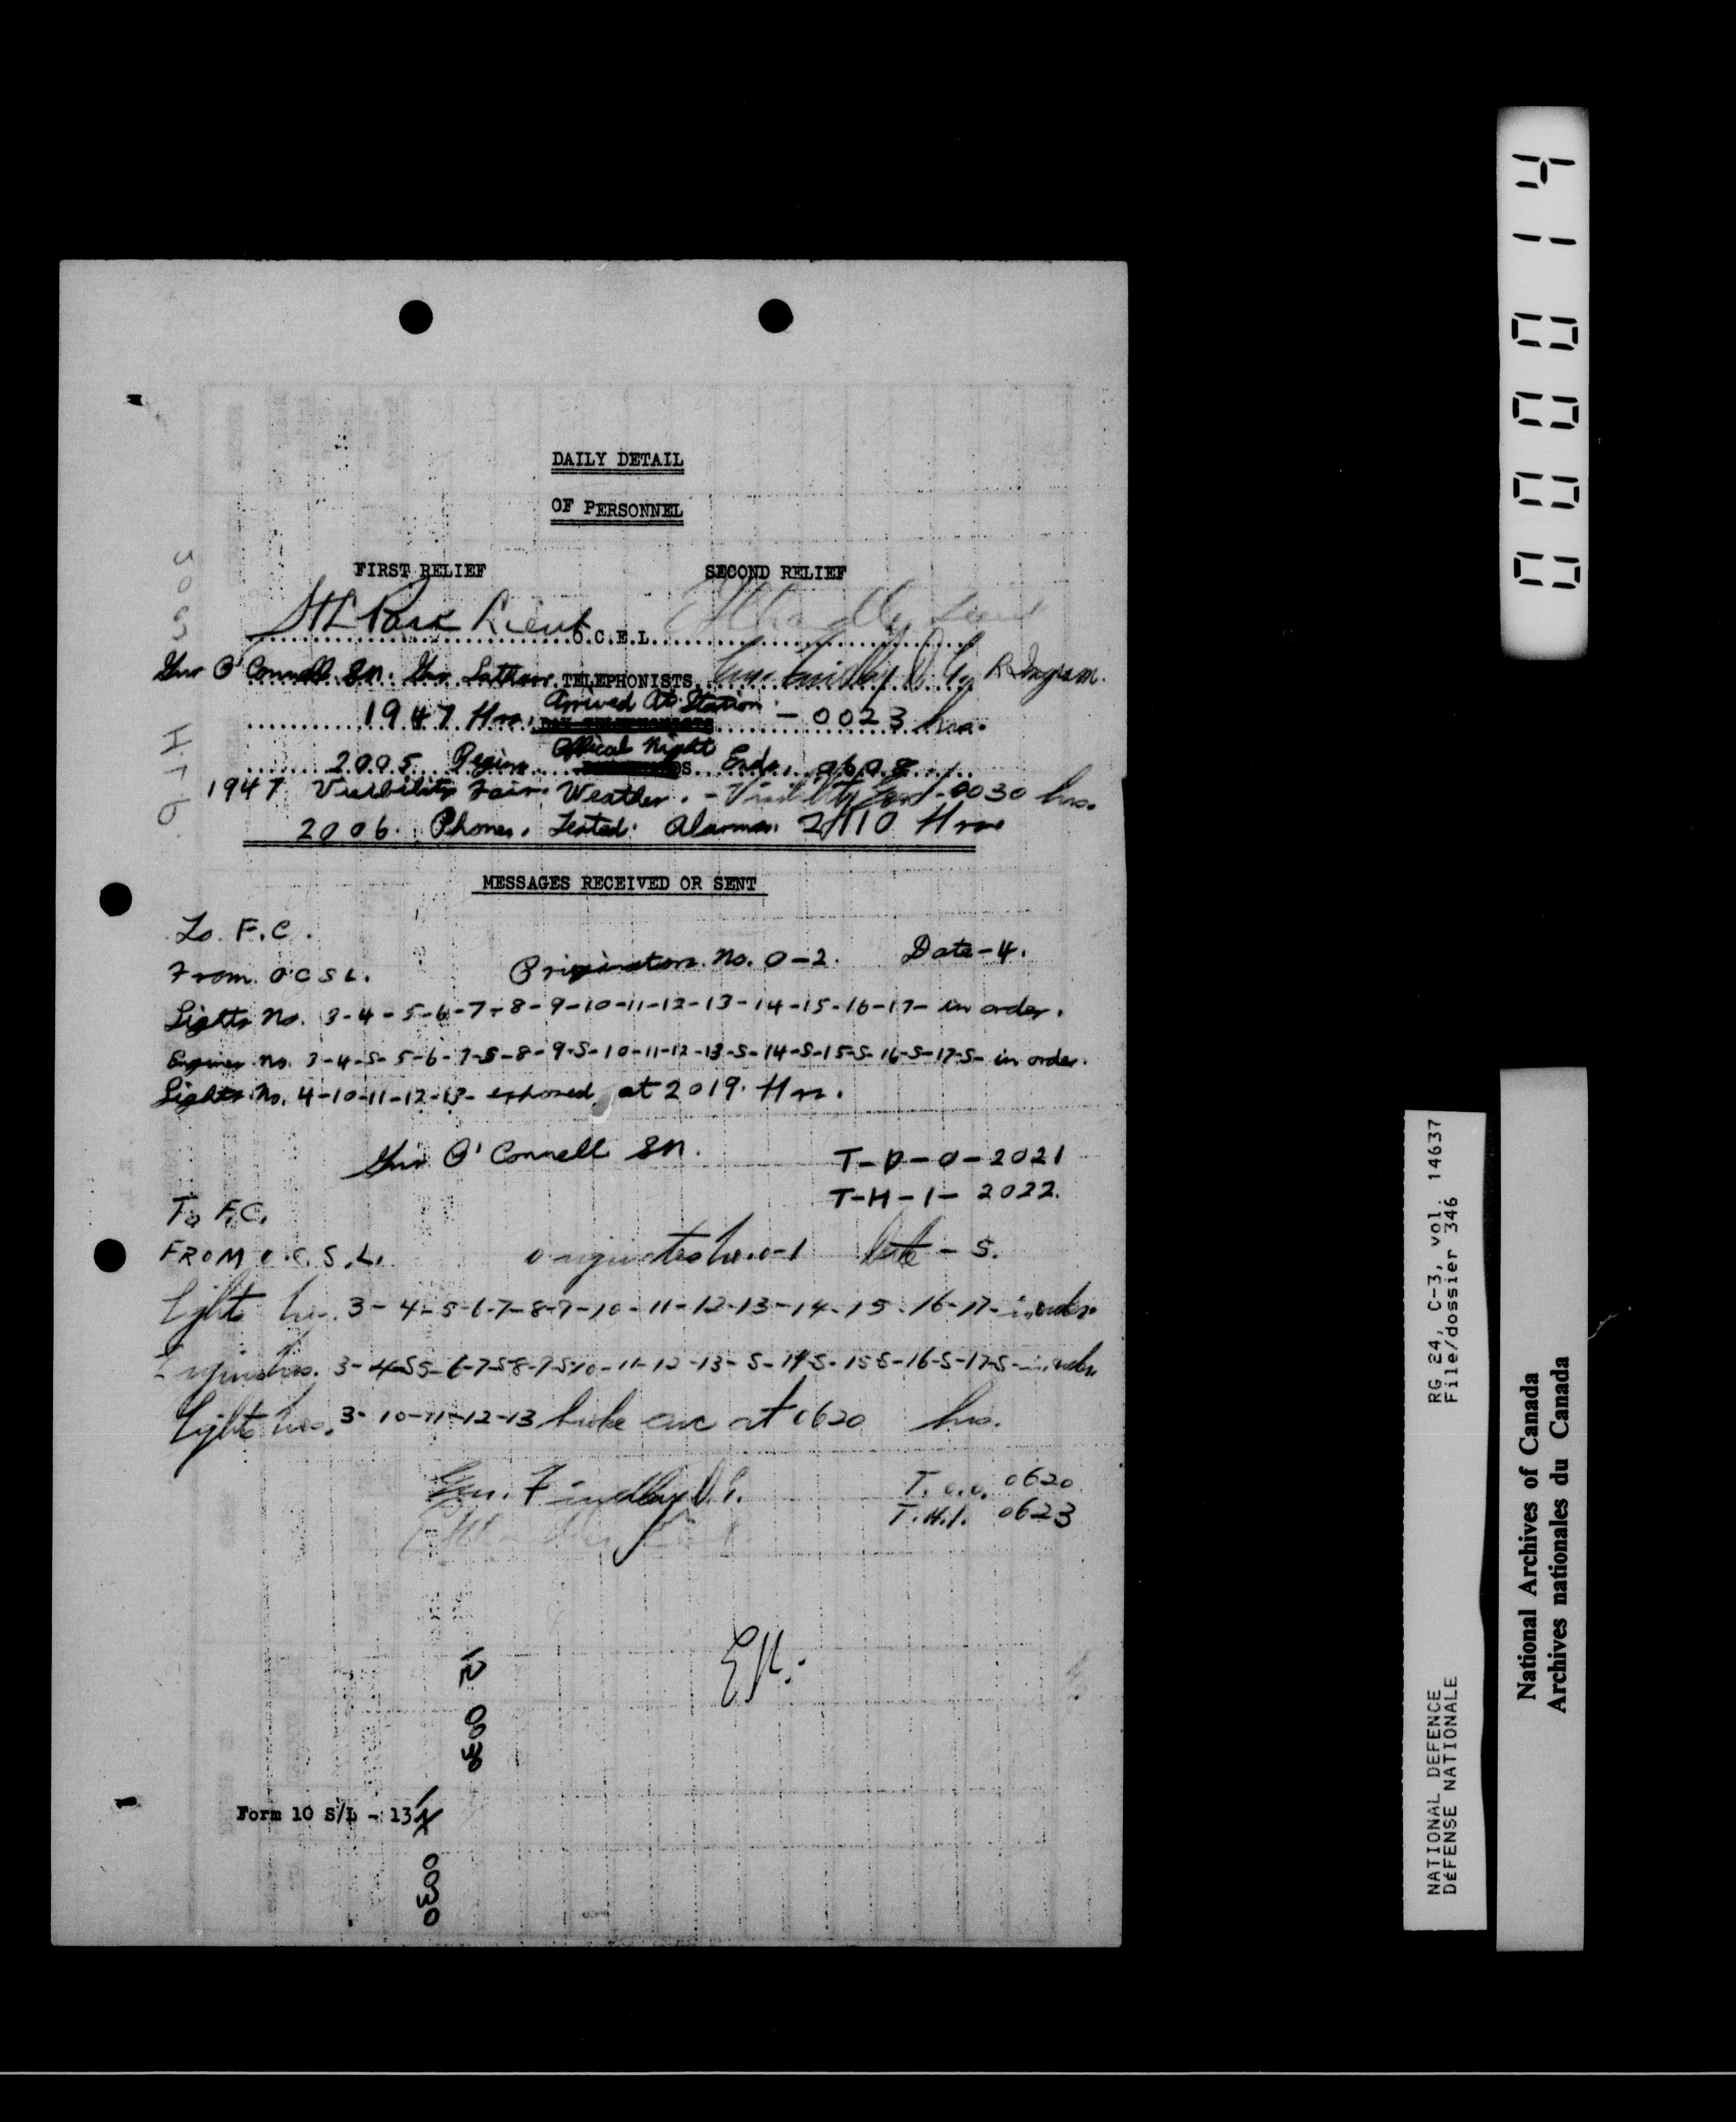 DAILY DETAIL
OF PERSONNEL
FIRST RELIEF SECOND RELIEF
Park Lieut O.C.E.L. Lieut
Gnr O'Connell S.N. Gnr TELEPHONISTS R. Ingram.
1947 Hrs. Arrived At Station - 0023 hrs.
2005 Begins Offical Night Ends. 0608
1947 Visibility Fair. Weather. - Visibility Good - 0030 hrs.
2006. Phones. Tested. Alarms. 2110 Hrs
MESSAGES RECEIVED OR SENT
To. F.C.
From. O.C S L. Originators No. 0-2. Date-4.
Lights No. 3-4-5-6-7-8-9-10-11-12-13-14-15-16-17- in order.
Engines No. 3-4-S-5-6-7-S-8-9-S-10-11-12-13-S-14-S-15-S-16-S-17-S- in order.
Lights No. 4-10-11-12-13- exposed at 2019. Hrs.
Gnr O'Connell S.N. T-O-O-2021
T-H-I-2022.
To F.C.
FROM O.C.S.L. originators No. 0-1 Date - 5.
Lights nos. 3-4-5-6-7-8-9-10-11-12-13-14-15-16-17- in order.
Engines nos. 3-4-S5-6-7-S-8-9-S-10-11-12-13-S-14-S-15-S-16-S-17-S- in order.
Lights nos. 3-10-11-12-13 broke arc at 0620 hrs.
Gnr. Findlay D.G. T.O.O. 0620
T.H.I. 0623
0030
Form 10 S/L - 13
0030
000014
RG 24, C-3, vol. 14637
File/dossier 346
NATIONAL DEFENCE
DÉFENSE NATIONALE
National Archives of Canada
Archives nationales du Canada